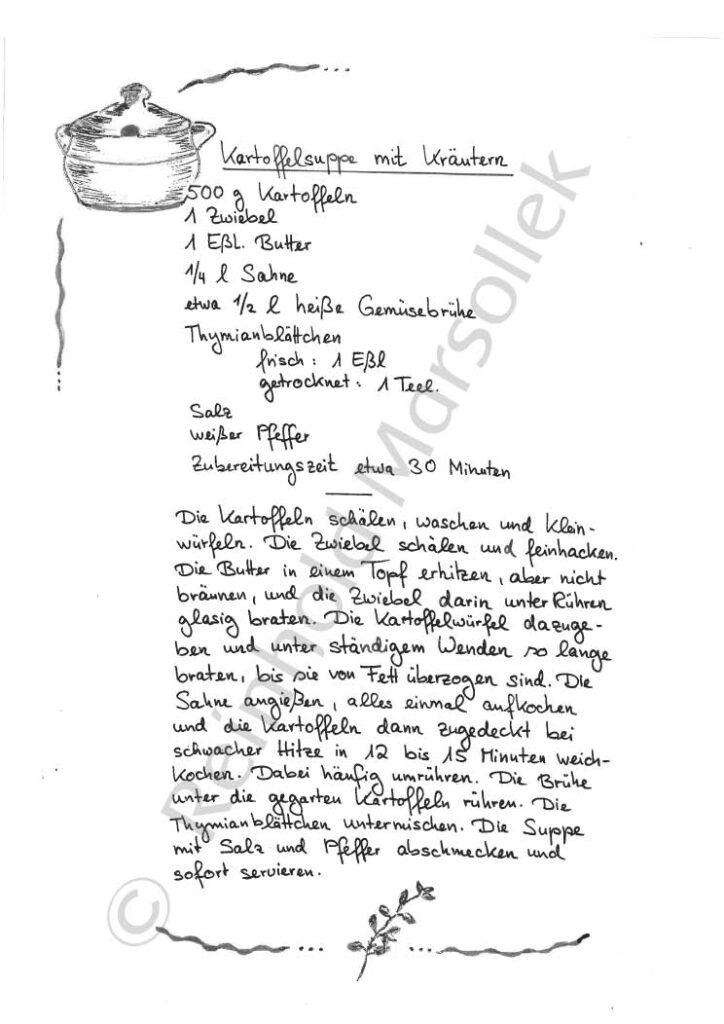 Kartoffelsuppe mit Kräutern
500 g Kartoffeln
1 Zwiebel
1 EßL. Butter
1/4 l Sahne
etwa 1/2 l heiße Gemüsebrühe
Thymianblättchen
frisch : 1 Eßl
getrocknet : 1 Teel.
Salz
weißer Pfeffer
Zubereitungszeit etwa 30 Minuten
Die Kartoffeln schälen, waschen und klein-
würfeln. Die Zwiebel schälen und feinhacken.
Die Butter in einem Topf erhitzen, aber nicht
bräunen, und die Zwiebel darin unter Rühren
glasig braten. Die Kartoffelwürfel dazuge-
ben und unter ständigem Wenden so lange
braten, bis sie von Fett überzogen sind. Die
Sahne angießen, alles einmal aufkochen
und die Kartoffeln dann zugedeckt bei
schwacher Hitze in 12 bis 15 Minuten weich-
kochen. Dabei häufig umrühren. Die Brühe
unter die gegarten Kartoffeln rühren. Die
Thymianblättchen untermischen. Die Suppe
mit Salz und Pfeffer abschmecken und
sofort servieren.
© Reinhold Marsollek